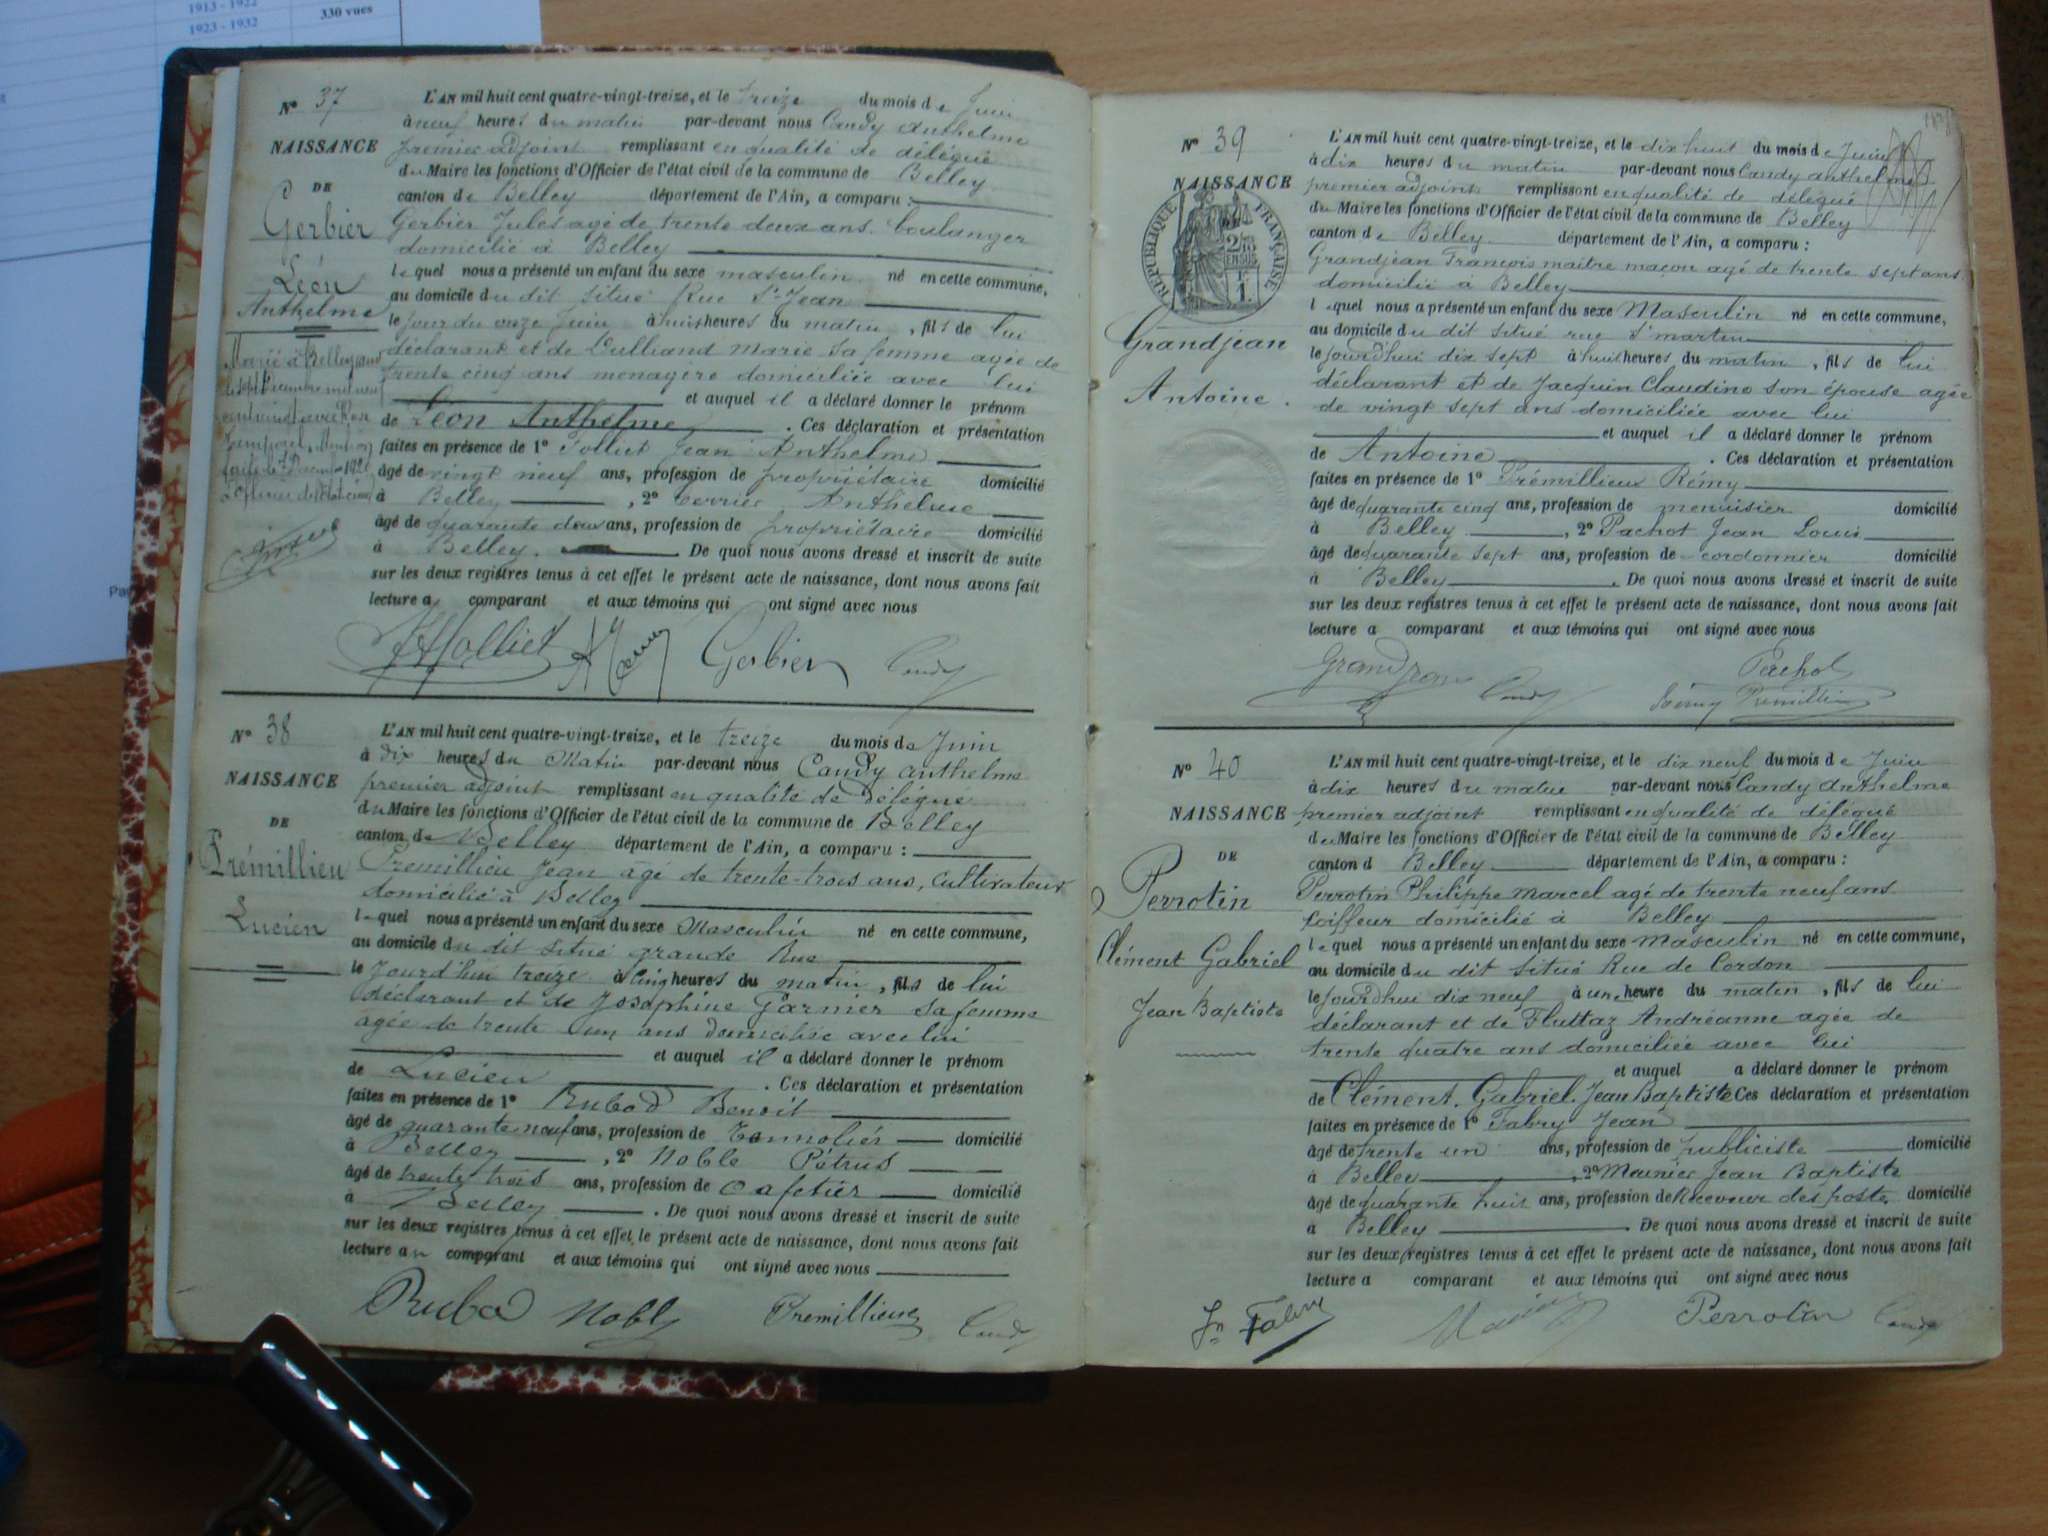 1913 - 1922
1923 - 1932
330 vues
N° 37
NAISSANCE
DE
Gerbier
Léon
Anthelme
L'AN mil huit cent quatre-vingt-treize, et le treize du mois de Juin
à neuf heures du matin par-devant nous Candy Anthelme
premier adjoint remplissant en qualité de délégué
du Maire les fonctions d'Officier de l'état civil de la commune de Belley
canton de Belley département de l'Ain, a comparu :
Gerbier Jules agé de trente deux ans boulanger
domicilié à Belley
lequel nous a présenté un enfant du sexe masculin né en cette commune,
au domicile du dit situé Rue St Jean
le jour du onze Juin à huit heures du matin, fils de lui
déclarant et de Marie sa femme agée de
trente cinq ans menagere domiciliée avec lui
et auquel il a déclaré donner le prénom
de Léon Anthelme. Ces déclaration et présentation
faites en présence de 1° Folliet Jean Anthelme
âgé de vingt neuf ans, profession de propriétaire domicilié
à Belley, 2° Anthelme
âgé de quarante deux ans, profession de propriétaire domicilié
à Belley. De quoi nous avons dressé et inscrit de suite
sur les deux registres tenus à cet effet le présent acte de naissance, dont nous avons fait
lecture a comparant et aux témoins qui ont signé avec nous
Gerbier Candy
N° 38
NAISSANCE
DE
Prémillieu
Lucien
L'AN mil huit cent quatre-vingt-treize, et le treize du mois de Juin
à dix heures du Matin par-devant nous Candy anthelme
premier adjoint remplissant en qualité de délégué
du Maire les fonctions d'Officier de l'état civil de la commune de Belley
canton de Belley département de l'Ain, a comparu :
Premillieu Jean âgé de trente-trois ans, cultivateur
domicilié à Belley
lequel nous a présenté un enfant du sexe Masculin né en cette commune,
au domicile du dit situé grande Rue
le Jourd'hui treize à cinq heures du matin, fils de lui
déclarant et de Josephine Garnier sa femme
agée de trente un ans domiciliée avec lui
et auquel il a déclaré donner le prénom
de Lucien. Ces déclaration et présentation
faites en présence de 1° Rubod Benoit
âgé de quarante neuf ans, profession de domicilié
à Belley, 2° Noble Pétrus
âgé de trente trois ans, profession de Cafetier domicilié
à Belley. De quoi nous avons dressé et inscrit de suite
sur les deux registres tenus à cet effet le présent acte de naissance, dont nous avons fait
lecture au comparant et aux témoins qui ont signé avec nous
Rubod Noble Premillieux Candy
N° 39
NAISSANCE
RÉPUBLIQUE FRANÇAISE
Grandjean
Antoine.
L'AN mil huit cent quatre-vingt-treize, et le dix huit du mois de Juin
à dix heures du matin par-devant nous Candy anthelme
premier adjoint remplissant en qualité de délégué
du Maire les fonctions d'Officier de l'état civil de la commune de Belley
canton de Belley département de l'Ain, a comparu :
Grandjean François maitre maçon agé de trente sept ans
domicilié à Belley
lequel nous a présenté un enfant du sexe Masculin né en cette commune,
au domicile du dit situé rue St martin
le jourd'hui dix sept à huit heures du matin, fils de lui
déclarant et de Jacquin Claudine son épouse agée
de vingt sept ans domiciliée avec lui
et auquel il a déclaré donner le prénom
de Antoine. Ces déclaration et présentation
faites en présence de 1° Prémillieux Rémy
âgé de quarante cinq ans, profession de menuisier domicilié
à Belley, 2° Pachot Jean Louis
âgé de quarante sept ans, profession de cordonnier domicilié
à Belley. De quoi nous avons dressé et inscrit de suite
sur les deux registres tenus à cet effet le présent acte de naissance, dont nous avons fait
lecture a comparant et aux témoins qui ont signé avec nous
Grandjean Candy Pachot
N° 40
NAISSANCE
DE
Perrotin
Clément Gabriel
Jean Baptiste
L'AN mil huit cent quatre-vingt-treize, et le dix neuf du mois de Juin
à dix heures du matin par-devant nous Candy Anthelme
premier adjoint remplissant en qualité de délégué
du Maire les fonctions d'Officier de l'état civil de la commune de Belley
canton d Belley département de l'Ain, a comparu :
Perrotin Philippe Marcel agé de trente neuf ans
Coiffeur domicilié à Belley
lequel nous a présenté un enfant du sexe Masculin né en cette commune,
au domicile du dit situé Rue de Cordon
le jourd'hui dix neuf à une heure du matin, fils de lui
déclarant et de Fluttaz Andréanne agée de
trente quatre ans domiciliée avec lui
et auquel a déclaré donner le prénom
de Clément. Gabriel. Jean Baptiste Ces déclaration et présentation
faites en présence de 1° Fabry Jean
âgé de trente un ans, profession de publiciste domicilié
à Belley, 2° Meunier Jean Baptiste
âgé de quarante huit ans, profession de Receveur des postes domicilié
à Belley. De quoi nous avons dressé et inscrit de suite
sur les deux registres tenus à cet effet le présent acte de naissance, dont nous avons fait
lecture a comparant et aux témoins qui ont signé avec nous
Jn Fabry Perrotin Candy